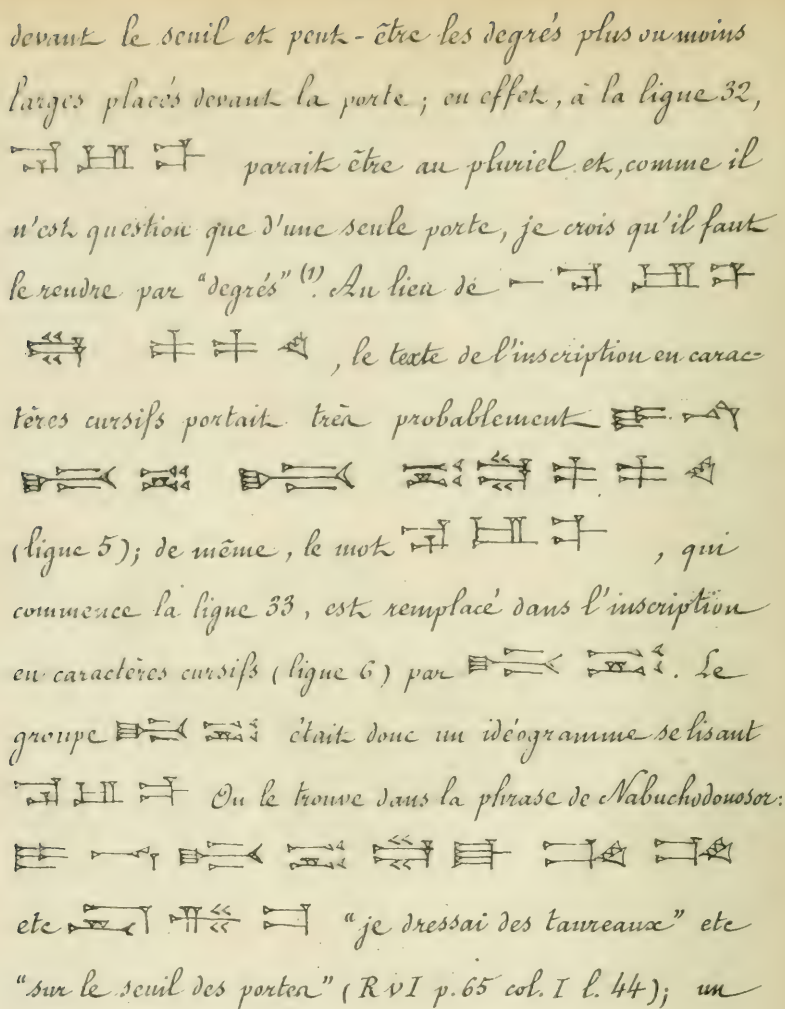 devant le seuil et peut-être les degrés plus ou moins
larges placés devant la porte ; en effet, à la ligne 32,
parait être au pluriel et, comme il
n'est question que d'une seule porte, je crois qu'il faut
le rendre par "degrés" (1). Au lieu de
, le texte de l'inscription en carac=
tères cursifs portait très probablement
(ligne 5); de même, le mot , qui
commence la ligne 33, est remplacé dans l'inscription
en caractères cursifs (ligne 6) par . Le
groupe était donc un idéogramme se lisant
On le trouve dans la phrase de Nabuchodonosor:
etc "je dressai des taureaux" etc
"sur le seuil des portes" (R VI p. 65 col. I l. 44); un